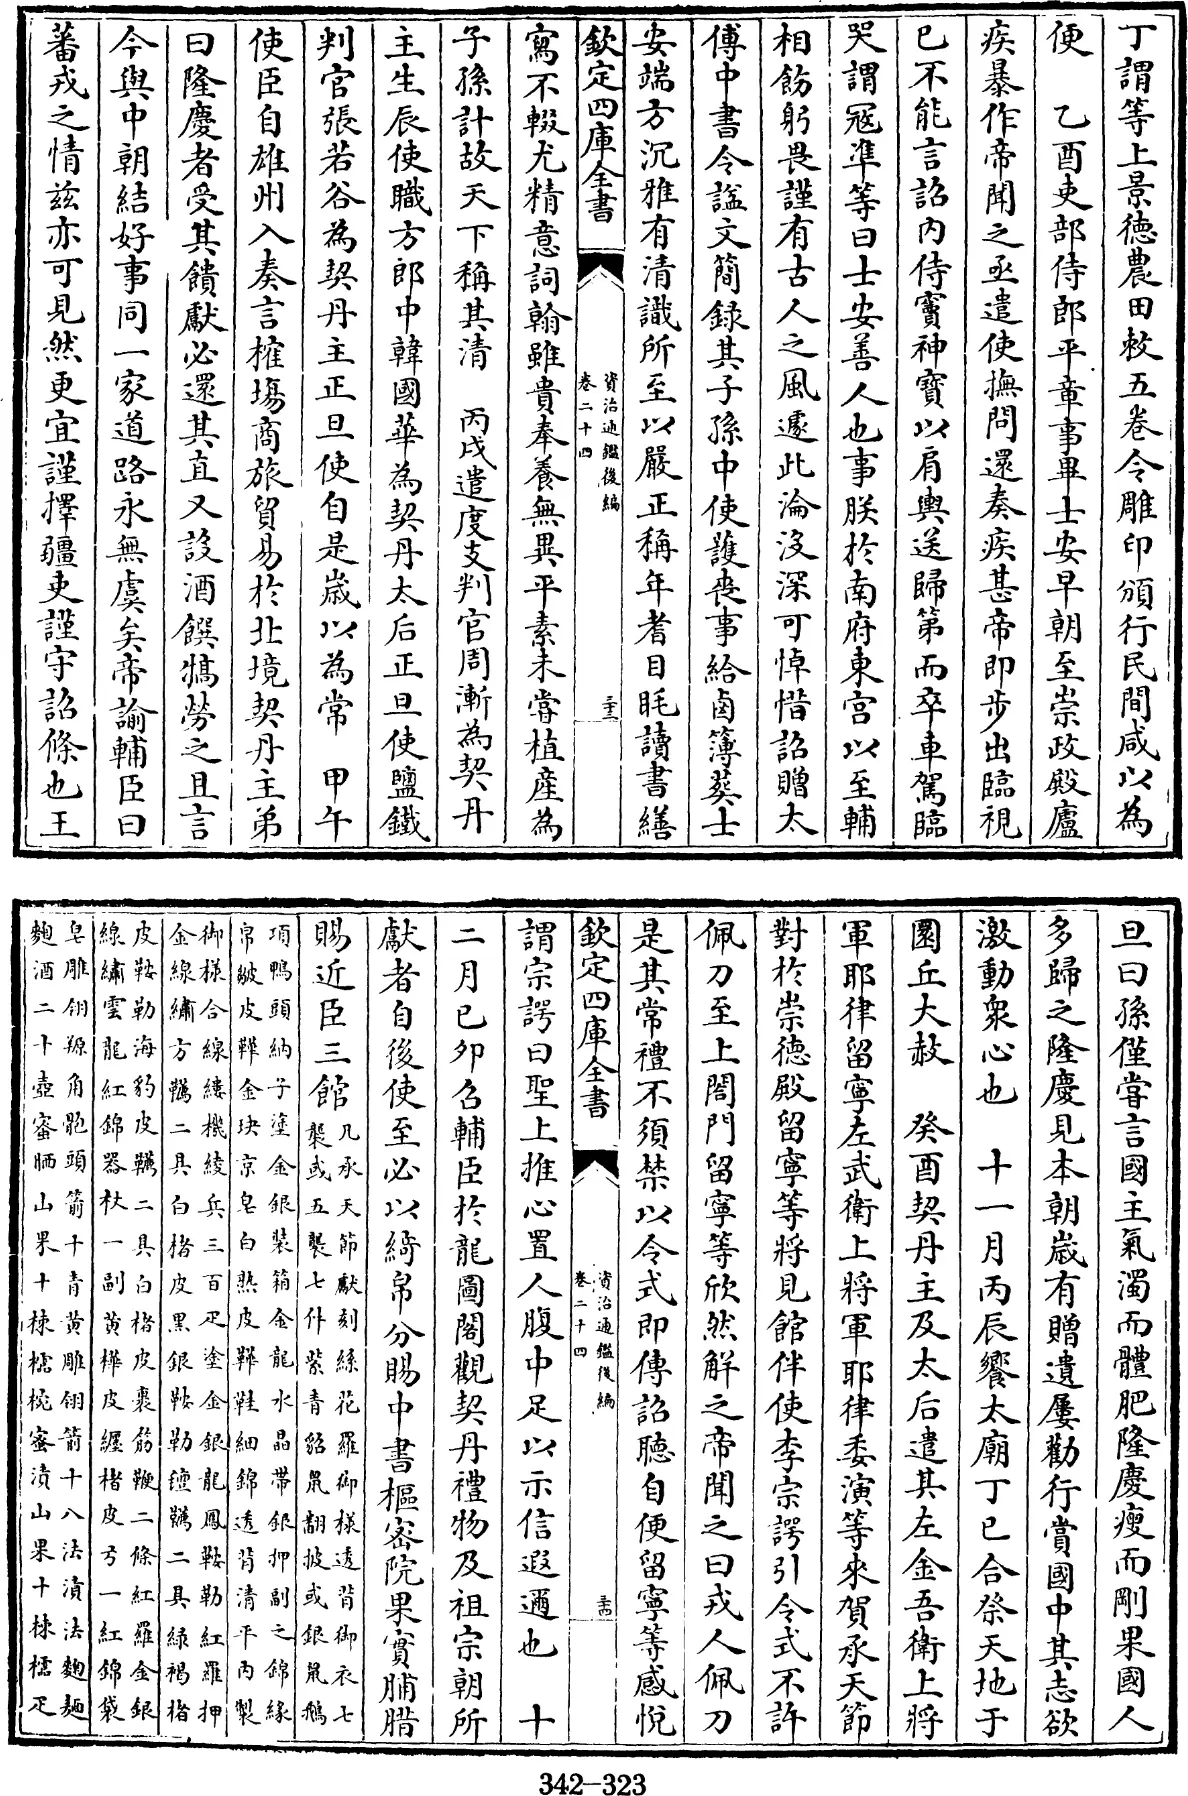 丁謂等上景德農田敕五卷令雕印頒行民間咸以為
便　乙酉吏部侍郎平章事畢士安早朝至崇政殿廬
疾暴作帝聞之亟遣使撫問還奏疾甚帝即步出臨視
已不能言詔內侍竇神寶以肩輿送歸第而卒車駕臨
哭謂寇準等曰士安善人也事朕於南府東宮以至輔
相飭躬畏謹有古人之風遽此淪沒深可悼惜詔贈太
傅中書令諡文簡錄其子孫中使護喪事給鹵簿葬士
安端方沉雅有清識所至以嚴正稱年耆目眊讀書繕
欽定四庫全書
資治通鑑後編
卷二十四
三十三
寫不輟尤精意詞翰雖貴奉養無異平素未嘗植産為
子孫計故天下稱其清　丙戌遣度支判官周漸為契丹
主生辰使職方郎中韓國華為契丹太后正旦使鹽鐵
判官張若谷為契丹主正旦使自是歲以為常　甲午
使臣自雄州入奏言榷場商旅貿易於北境契丹主弟
曰隆慶者受其饋獻必還其直又設酒饌犒勞之且言
今與中朝結好事同一家道路永無虞矣帝諭輔臣曰
蕃戎之情茲亦可見然更宜謹擇疆吏謹守詔條也王
旦曰孫僅嘗言國主氣濁而體肥隆慶瘦而剛果國人
多歸之隆慶見本朝歲有贈遺屢勸行賞國中其志欲
激動衆心也　十一月丙辰饗太廟丁巳合祭天地于
圜丘大赦　癸酉契丹主及太后遣其左金吾衛上將
軍耶律留寧左武衛上將軍耶律委演等來賀承天節
對於崇德殿留寧等將見館伴使李宗諤引令式不許
佩刀至上閤門留寧等欣然解之帝聞之曰戎人佩刀
是其常禮不須禁以令式即傳詔聽自便留寧等感悅
欽定四庫全書
資治通鑑後編
卷二十四
三十四
謂宗諤曰聖上推心置人腹中足以示信遐邇也　十
二月己卯召輔臣於龍圖閣觀契丹禮物及祖宗朝所
獻者自後使至必以綺帛分賜中書樞密院果實脯腊
賜近臣三館凡承天節獻刻絲花羅御樣透背御衣七
襲或五襲七件紫青貂鼠翻披或銀鼠鵝
項鴨頭納子塗金銀裝箱金龍水晶帶銀押副之錦緣
帛皴皮鞾金玦京皂白熟皮鞾鞋細錦透背清平內製
御樣合線縷機綾共三百疋塗金銀龍鳳鞍勒紅羅押
金線繡方韉二具白楮皮黑銀鞍勒氊韉二具綠褐楮
皮鞍勒海豹皮韉二具白楮皮裹筋鞭二條紅羅金銀
線繡雲龍紅錦器仗一副黃樺皮纏楮皮弓一紅錦袋
皂雕翎羱角骲頭箭十青黃雕翎箭十八法漬法麴麵
麴酒二十壺蜜晒山果十棟櫺椀蜜漬山果十棟櫺疋
342-323